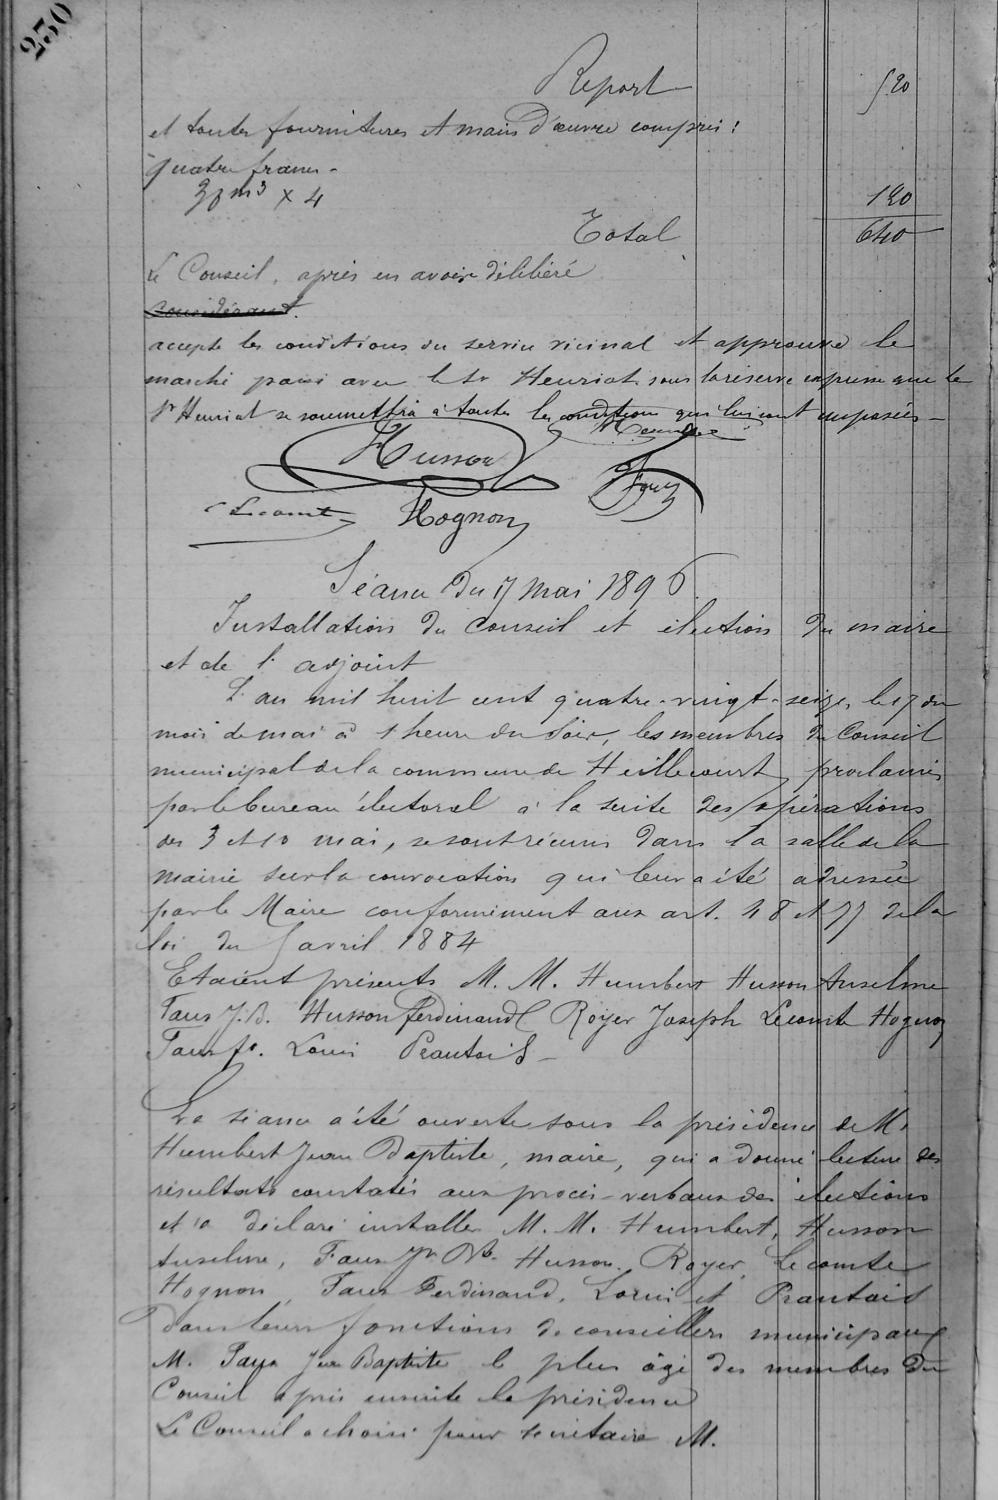 230
Report 520
et toutes fournitures et main d'œuvre compris :
quatre francs -
30 m3 x 4 120
Total 640
Le Conseil, après en avoir délibéré
considérant.
accepte les conditions du service vicinal et approuve le
marché passé avec le Sr Henriot sous la réserve expresse que le
Sr Henriot se soumettra à toutes les conditions qui lui sont imposées -
Husson
Lecomte Hognon
Séance du 17 mai 1896
Installation du Conseil et élection du maire
et de l'adjoint
L'an mil huit cent quatre-vingt-seize, le 17 du
mois de mai à 1 heure du soir, les membres du Conseil
municipal de la commune de Heillecourt, proclamés
par le bureau électoral à la suite des opérations
des 3 et 10 mai, se sont réunis dans la salle de la
mairie sur la convocation qui leur a été adressée
par le Maire conformément aux art. 48 et 77 de la
loi du 5 avril 1884
Etaient présents M. M. Humbert Husson Anselme
Faus J.B. Husson Ferdinand Royer Joseph Lecomte Hognon
Faus fd. Louis Prautois -
La séance a été ouverte sous la présidence de M.
Humbert Jean Baptiste, maire, qui a donné lecture des
résultats constatés aux procès-verbaux des élections
et a déclaré installer M. M. Humbert, Husson
Anselme, Faus Jn Bte Husson, Royer, Lecomte
Hognon, Faus Ferdinand, Louis et Prautois
dans leurs fonctions de conseillers municipaux
M. Faus Jean Baptiste le plus âgé des membres du
Conseil a pris ensuite la présidence
Le Conseil a choisi pour secrétaire M.